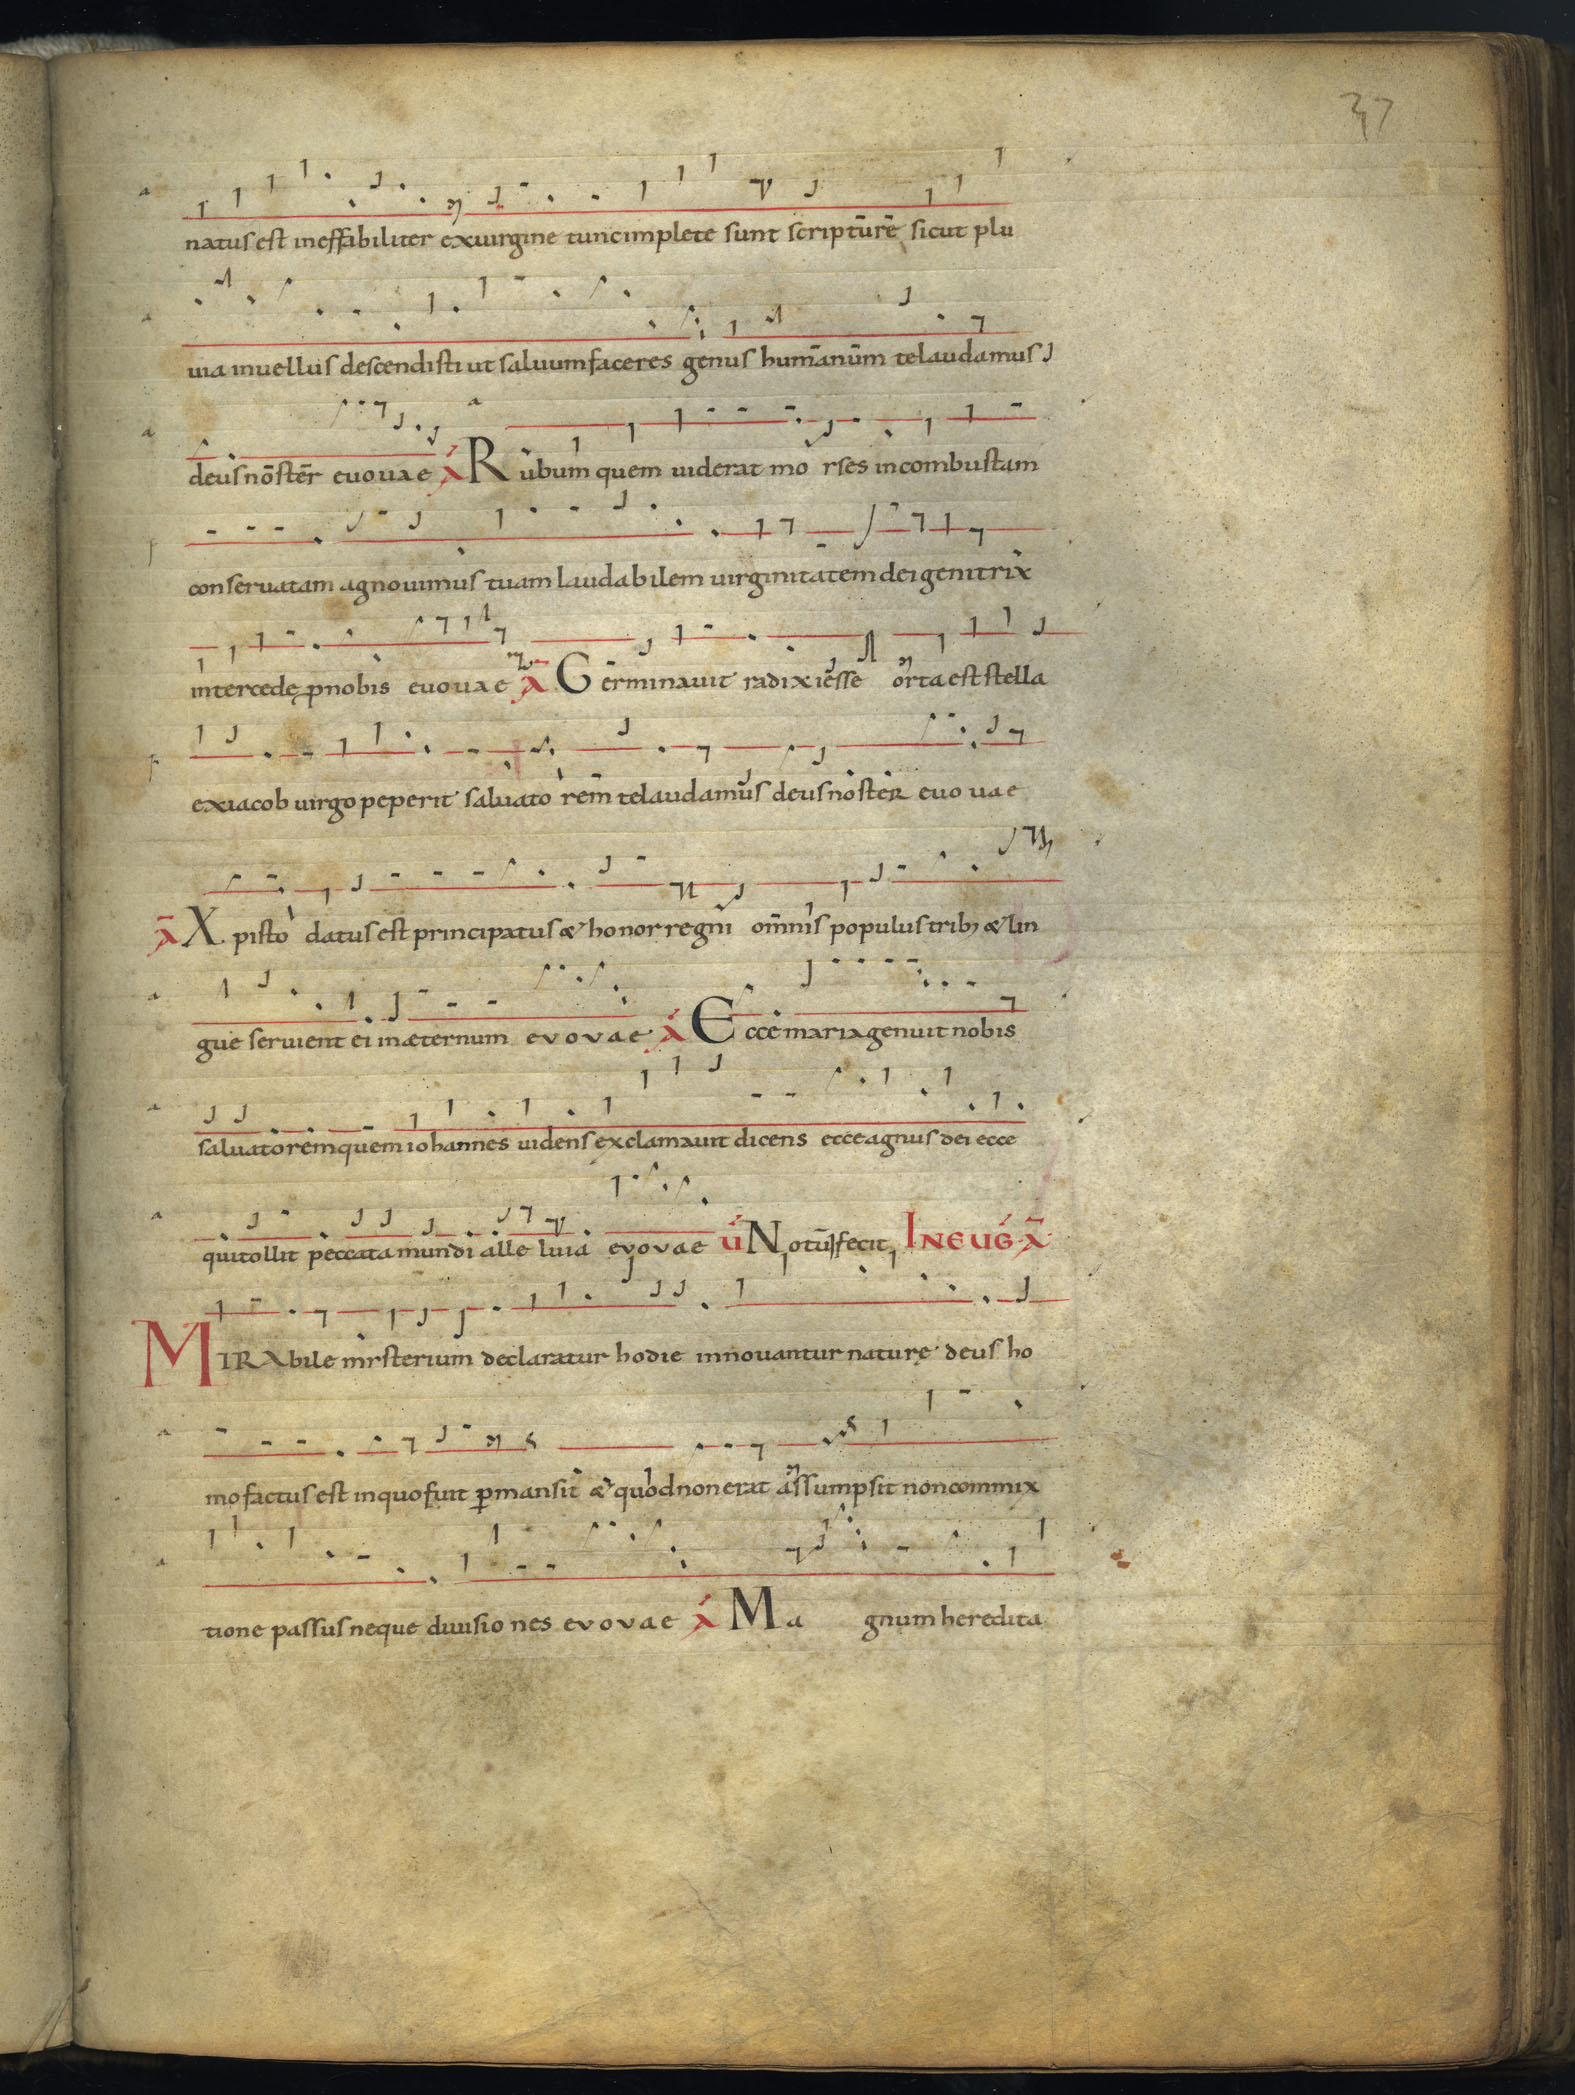 37
natus est ineffabiliter ex uirgine tunc implete sunt scripture sicut plu
uia in uellus descendisti ut saluum faceres genus humanum te laudamus
deus noster euouae A Rubum quem uiderat moyses incombustam
conseruatam agnouimus tuam laudabilem uirginitatem dei genitrix
intercede ꝓ nobis euouae A Germinauit radix iesse orta est stella
ex iacob uirgo peperit saluatorem te laudamus deus noster euouae
A Xpisto datus est principatus & honor regni omnis populus trib; & lin
gue seruient ei in æternum evovae A Ecce maria genuit nobis
saluatorem quem iohannes uidens exclamauit dicens ecce agnus dei ecce
qui tollit peccata mundi alleluia evovae V Notū fecit IN EUG A
MIRAbile mysterium declaratur hodie innouantur nature deus ho
mo factus est in quo fuit ꝑmansit & quod non erat assumpsit non commix
tione passus neque diuisiones evovae A Magnum heredita